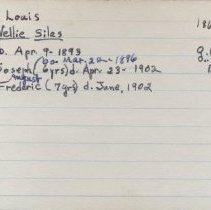 Louis 186
Nellie Siles
D. Apr. 9-1893
bo Mar. 22-1896
Joseph (6yrs) d. Apr. 23-1902
August
Frederic (7yrs) d. June, 1902